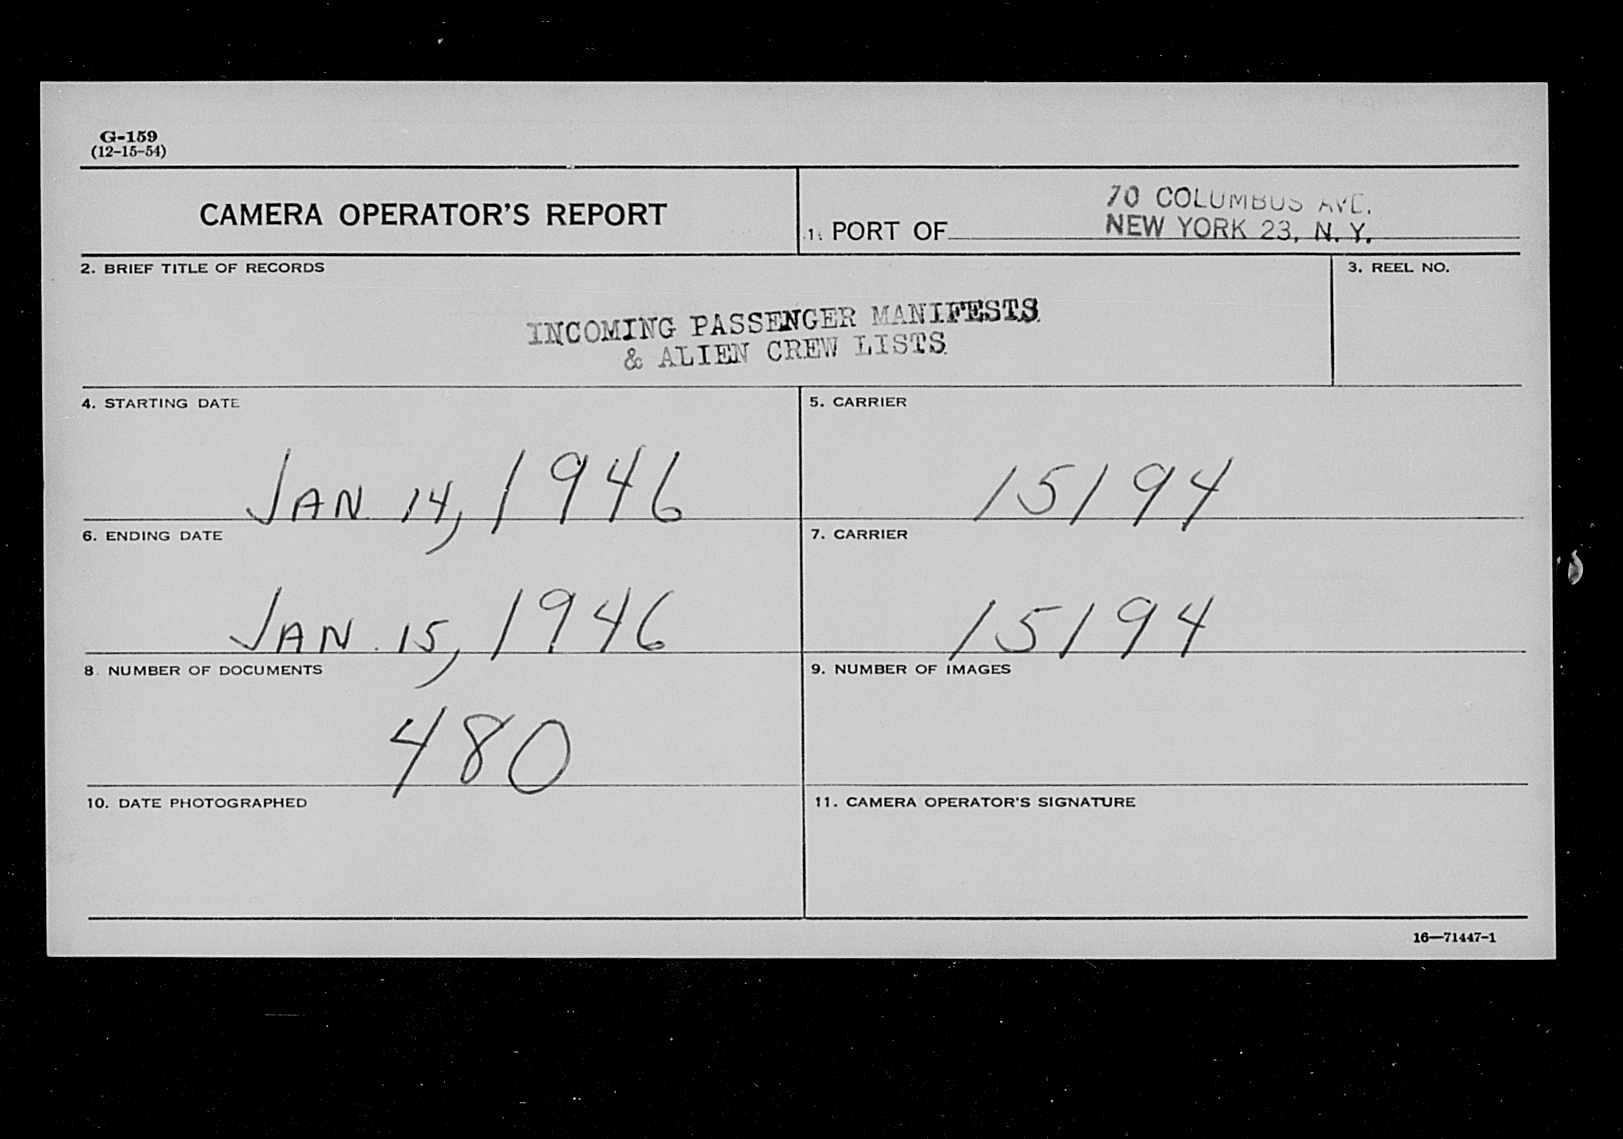 G-159
(12-15-54)
CAMERA OPERATOR'S REPORT
1. PORT OF
70 COLUMBUS AVE.
NEW YORK 23, N. Y.
2. BRIEF TITLE OF RECORDS
3. REEL NO.
INCOMING PASSENGER MANIFESTS
& ALIEN CREW LISTS
4. STARTING DATE
5. CARRIER
JAN 14, 1946
15194
6. ENDING DATE
7. CARRIER
JAN. 15, 1946
15194
8. NUMBER OF DOCUMENTS
9. NUMBER OF IMAGES
480
10. DATE PHOTOGRAPHED
11. CAMERA OPERATOR'S SIGNATURE
16—71447-1